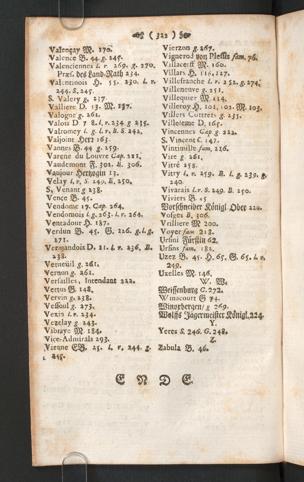 ( 322 )
Valençay M. 170.
Valence B. 44. g. 245.
Valenciennes l. v. 269. g. 270.
Præs. des Land-Rath 234.
Valentinois H. 55. 230. l. v.
244. S. 245.
S. Valery g. 237
Valliere D. 13. M. 187.
Valogne g. 261.
Valois D 7 8. l. v. 234 g. 235.
Valromey l. g. l. v. B. S. 242.
Valjoint Herr 163.
Vannes B. 44 g. 259.
Varenne du Louvre Cap. 211.
Vaudemont F. 301. E. 306.
Vaujour Hertzogin 13.
Velay l. v. S. 249. E. 250.
S. Venant g. 238
Vence B. 45.
Vendome 17. Cap. 264.
Vendomois l. g. 263. l. v. 264.
Ventadour H. 187.
Verdun B. 45. G. 126. g. l. g.
271.
Vermandois D. 21. l. v. 236. B.
238.
Verneuil g. 261.
Vernon g. 261.
Versailles, Intendant 222.
Vertus G. 148.
Vervin g. 238.
Vesoul g. 273.
Vexin l. v. 234.
Vezelay g 243.
Vibraye M. 184.
Vice-Admirals 293.
Vienne EB. 25. l. v. 244. g.
245.
Vierzon g. 267.
Vignerod von Plessis fam. 76.
Villacerf M. 160.
Villars H. 116, 127.
Villefranche l. v. 252. g. 274.
Villeneuve g. 251.
Villequier M. 114.
Villeroy H. 101, 102. M. 103.
Villers Cottrets g. 235.
Villerome D. 165.
Vincennes Cap. g. 222.
S. Vincent C. 147.
Vintimille fam. 226.
Vire g. 261.
Vitré 258.
Vitry l. v. 259. B. l. g. 239. g.
240.
Vivarais l. v. S. 249. B. 250.
Viviers B. 45
Vorschneider Königl. Ober 220.
Vosges B. 306.
Vrilliere M 200.
Voyer fam 212.
Ursini Fürstin 62.
Ursins fam. 182.
Uzez B. 45. H. 65. G. 65. l. v.
249.
Uxelles M. 146.
W.
Weissenburg C. 272.
Wimacourt G 94.
Winoxbergen/ g 269.
Wolffs Jägermeister Königl. 224
Y.
Yeres S 246. G. 248.
Z.
Zabula B. 46.
E N D E.